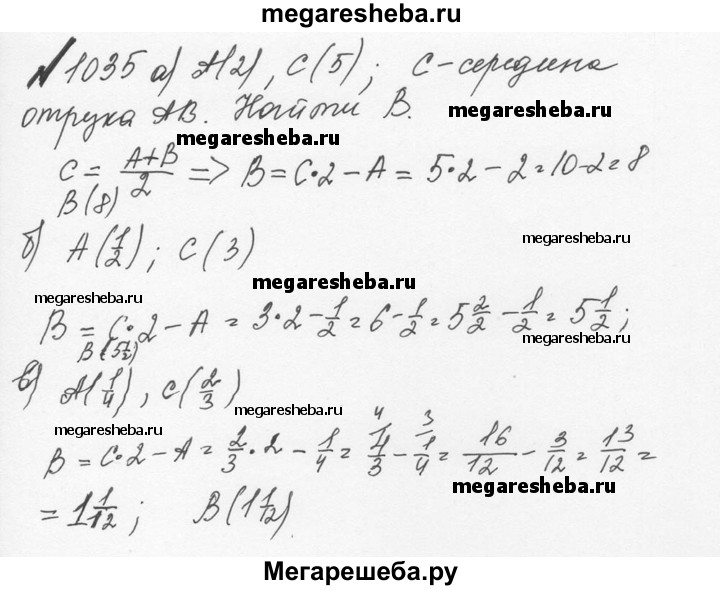 megaresheba.ru
№ 1035 а) A(2), C(5); C-середина
отрезка AB. Найти B. megaresheba.ru
megaresheba.ru
C = (A+B)/2 => B = C·2 - A = 5·2 - 2 = 10-2 = 8
B(8)
б) A(1/2); C(3) megaresheba.ru
megaresheba.ru
megaresheba.ru
B = C·2 - A = 3·2 - 1/2 = 6 - 1/2 = 5 2/2 - 1/2 = 5 1/2;
B(5 1/2) megaresheba.ru
в) A(1/4), C(2/3)
megaresheba.ru
megaresheba.ru
B = C·2 - A = 2/3 · 2 - 1/4 = 4/3 - 1/4 = 16/12 - 3/12 = 13/12 =
megaresheba.ru
= 1 1/12; B(1 1/12)
Мегарешеба.ру